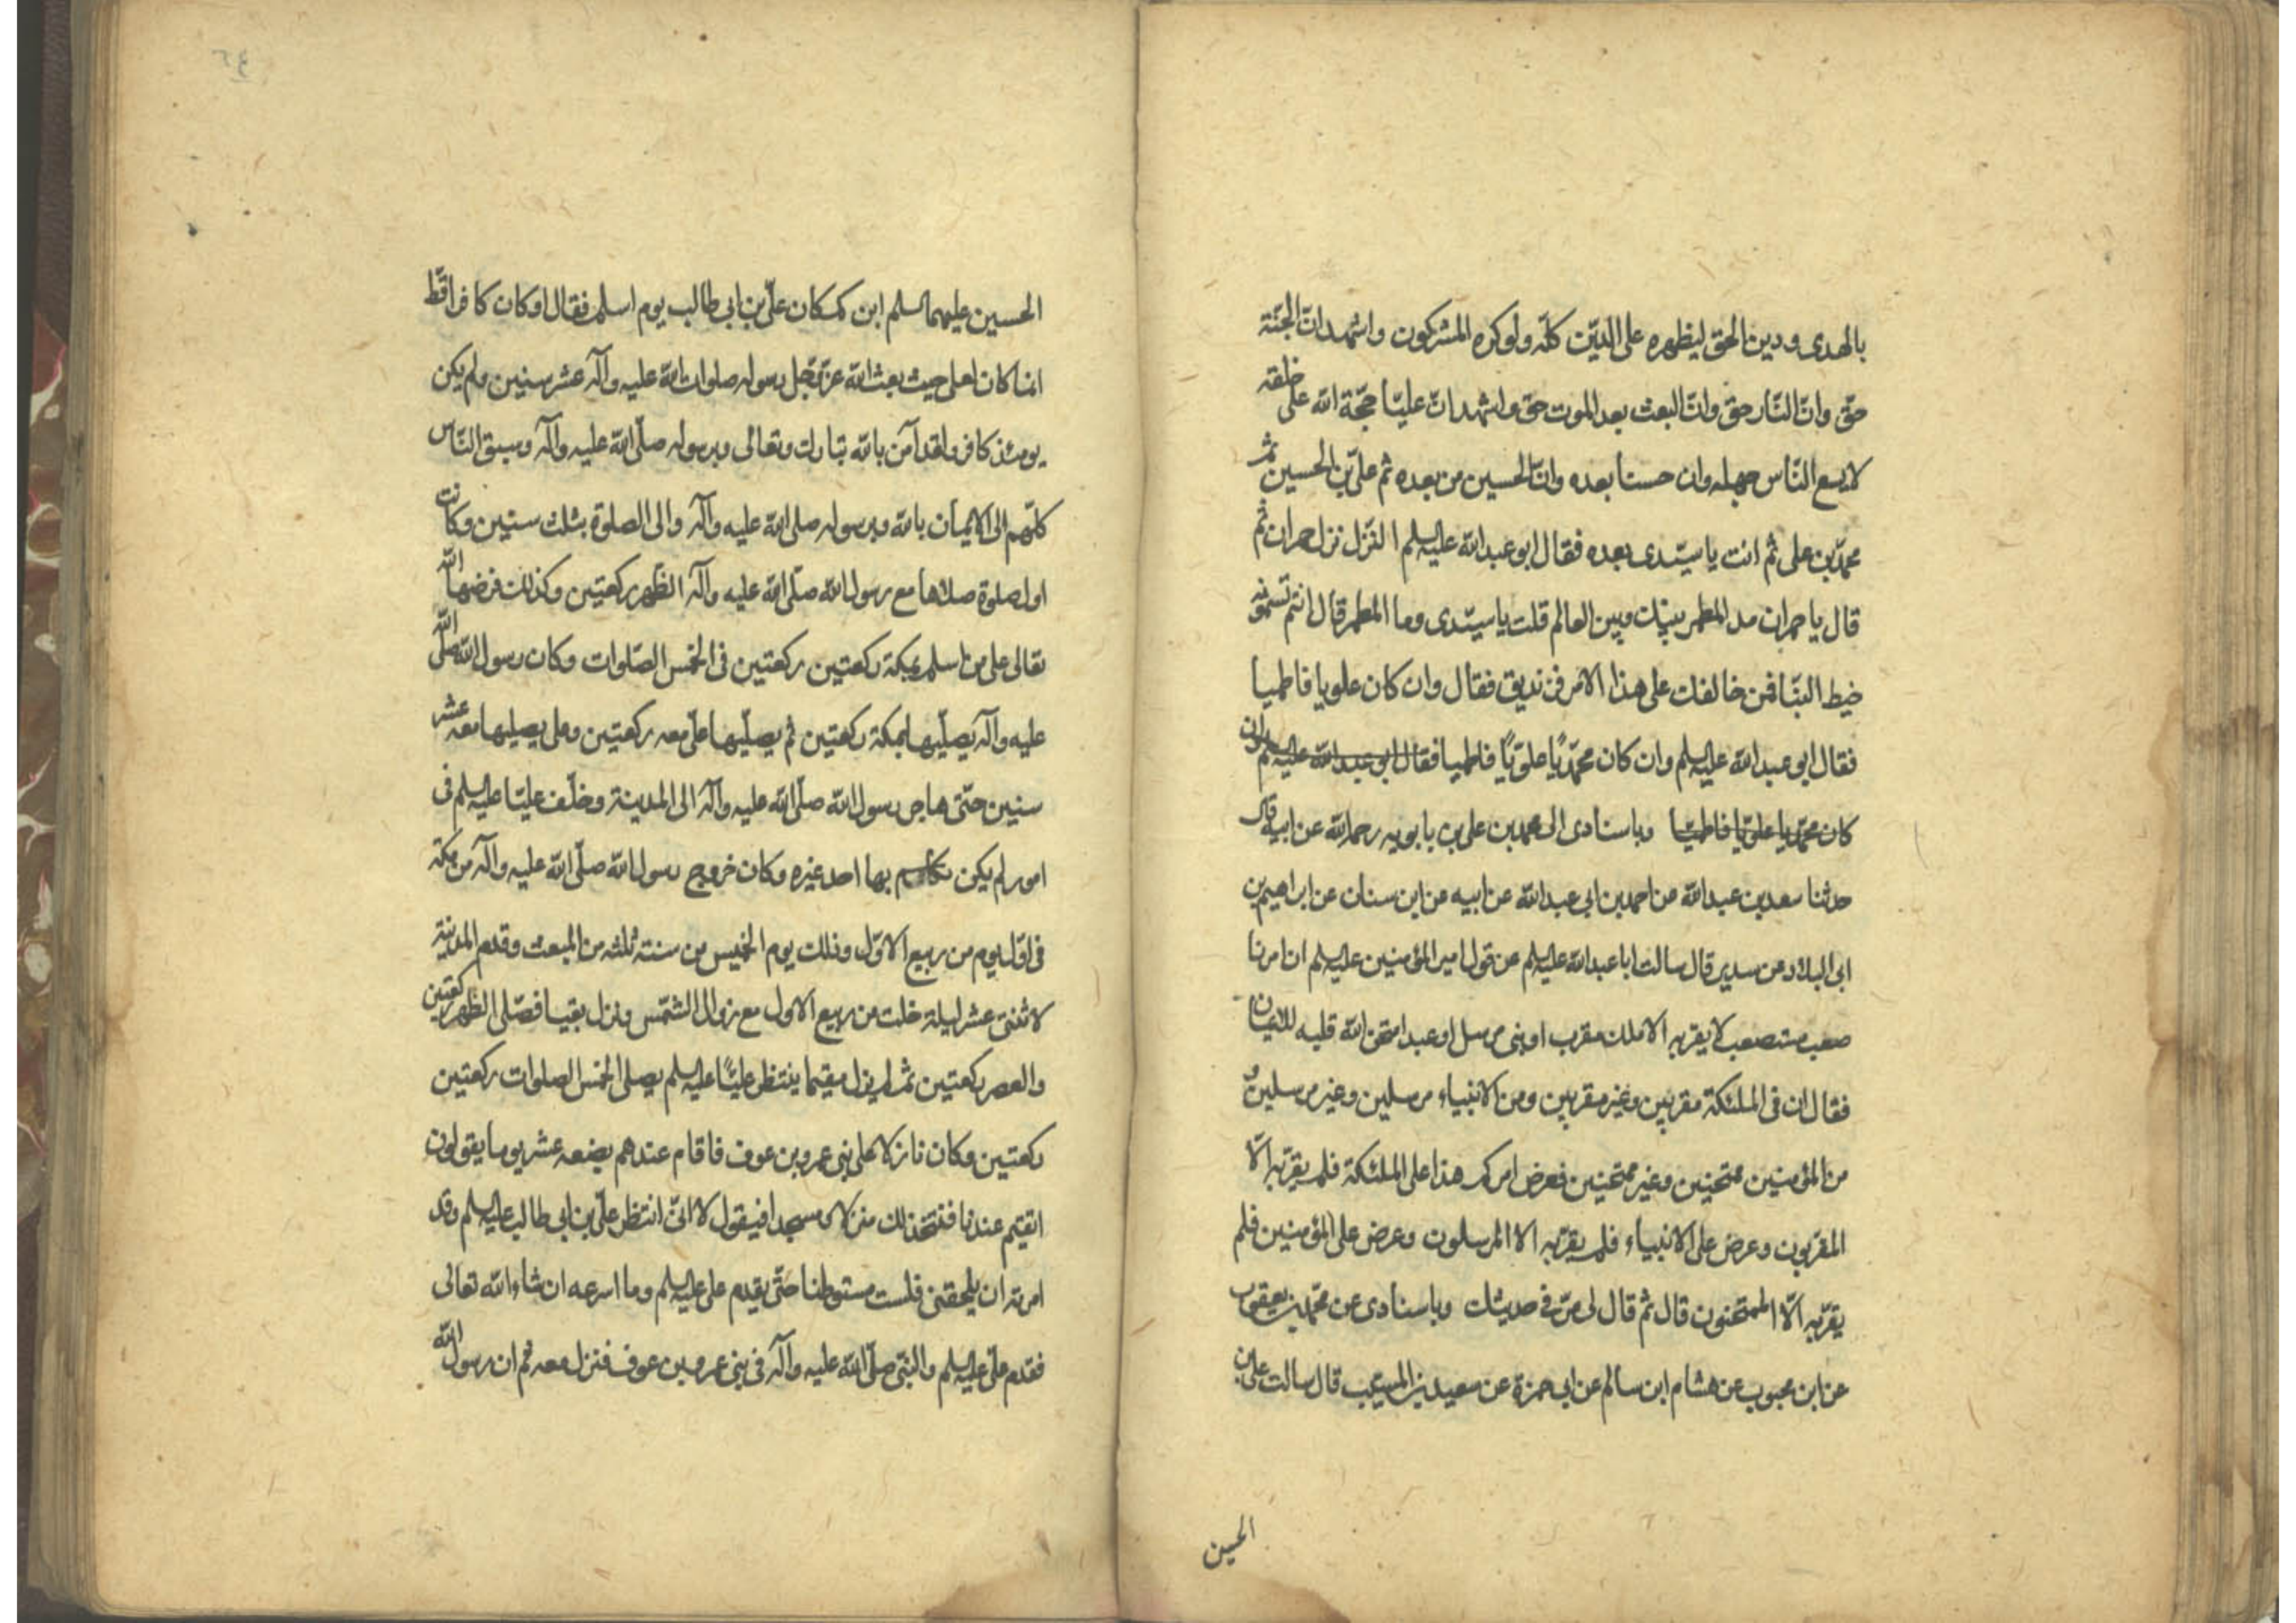 بالهدى ودين الحق ليظهره على الدين كله ولو كره المشركون واشهد ان الجنة
حق وان النار حق وان البعث بعد الموت حق واشهد ان عليا حجة الله على خلقه
لا يسع الناس جهله وان حسنا بعده وان الحسين من بعده ثم علي بن الحسين ثم
محمد بن على ثم انت يا سيدى بعده فقال ابو عبد الله عليه السلم الترّ ترّ حمران ثم
قال يا حمران مد المطمر بينك وبين العالم قلت يا سيدى وما المطمر قال انتم تسمونه
خيط البنا فمن خالفك على هذا الامر فزنديق فقال وان كان علويا فاطميا
فقال ابو عبد الله عليه السلم وان كان محمديًا علويًا فاطميا فقال ابو عبد الله عليه السلم وان
كان محمديا علويا فاطميا وباسنادى الى محمد بن على بن بابويه رحمه الله عن ابيه قال
حدثنا سعد بن عبد الله عن احمد بن ابى عبد الله عن ابيه عن ابن سنان عن ابراهيم بن
ابى البلاد عن سدير قال سالت ابا عبد الله عليه السلم عن قول امير المؤمنين عليه السلم ان امرنا
صعب مستصعب لا يقر به الا ملك مقرب او نبى مرسل او عبد امتحن الله قلبه للايمان
فقال ان فى الملئكة مقربين وغير مقربين ومن الانبياء مرسلين وغير مرسلين و
من المؤمنين ممتحنين وغير ممتحنين فعرض امركم هذا على الملئكة فلم يقرّ به الّا
المقربون وعرض على الانبياء فلم يقرّ به الا المرسلون وعرض على المؤمنين فلم
يقرّ به الّا الممتحنون قال ثم قال لى مرّ فى حديثك وباسنادى عن محمد بن يعقوب
عن ابن محبوب عن هشام ابن سالم عن ابى حمزة عن سعيد بن المسيب قال سالت على بن
الحسين
٣٤
الحسين عليهما السلم ابن كم كان علىّ بن ابى طالب يوم اسلم فقال اوكان كافرا قطّ
انما كان لعلى حيث بعث الله عزّ وجل رسوله صلوات الله عليه وآله عشر سنين ولم يكن
يومئذ كافر ولقد آمن بالله تبارك وتعالى وبرسوله صلّى الله عليه وآله وسبق النّاس
كلّهم الى الايمان بالله وبرسوله صلى الله عليه وآله والى الصلوة بثلث سنين وكانت
اول صلوة صلاها مع رسول الله صلّى الله عليه وآله الظّهر ركعتين وكذلك فرضها الله
تعالى على من اسلم بمكة ركعتين ركعتين فى الخمس الصّلوات وكان رسول الله صلّى الله
عليه وآله يصلّيها بمكة ركعتين ثم يصلّيها علىّ معه ركعتين وعلى يصليها معه عشر
سنين حتّى هاجر رسول الله صلّى الله عليه وآله الى المدينة وخلّف عليّا عليه السلم فى
امور لم يكن بها احد غيره وكان خروج رسول الله صلّى الله عليه وآله من مكة
فى اوّل يوم من ربيع الاوّل وذلك يوم الخميس من سنة ثلثه من المبعث وقدم المدينة
لاثنتى عشر ليلة خلت من ربيع الاول مع زوال الشّمس ونزل بقبا فصّلى الظهر ركعتين
والعصر ركعتين ثم لم يزل مقيما ينتظر عليًّا عليه السلم يصلى الخمس الصلوات ركعتين
ركعتين وكان نازلا على بنى عمرو بن عوف فاقام عندهم بضعه عشر يوما يقولون
اتقيم عندنا فنتخذ لك منزلا ومسجدا فيقول لا انّى انتظر علىّ بن ابى طالب عليه السلم وقد
امرته ان يلحقنى فلست مستوطنا حتّى يقدم على عليه السلم وما اسرعه ان شاء الله تعالى
فقدم علىّ عليه السلم والنبىّ صلّى الله عليه وآله فى بنى عمرو بن عوف فنزل معه ثم ان رسول الله